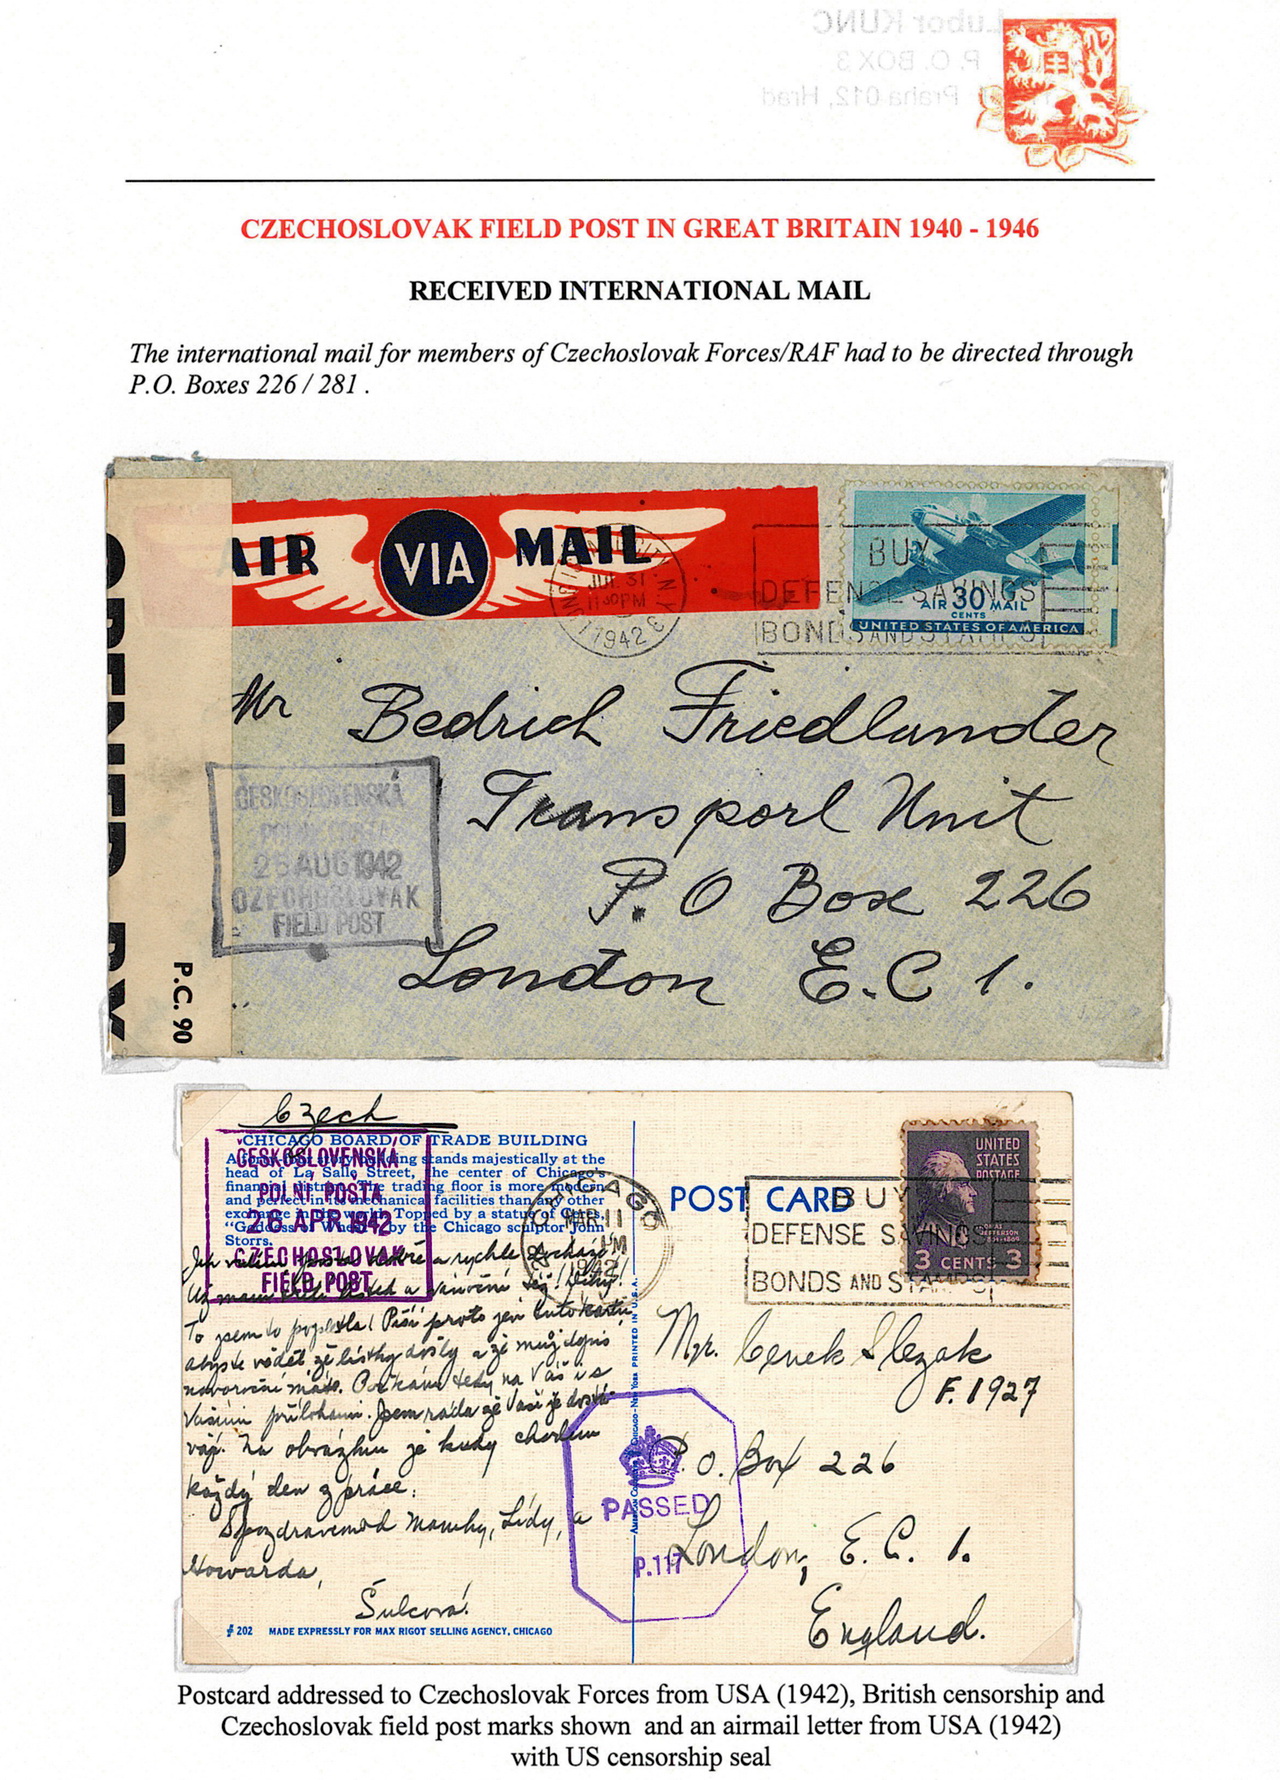 Lubor KUNC
P. O. BOX 3
Praha 012, Hrad
CZECHOSLOVAK FIELD POST IN GREAT BRITAIN 1940 - 1946
RECEIVED INTERNATIONAL MAIL
The international mail for members of Czechoslovak Forces/RAF had to be directed through
P.O. Boxes 226 / 281 .
AIR VIA MAIL
JUL 31
11 30 PM
1942
BUY
DEFENSE SAVINGS
BONDS AND STAMPS
AIR 30 MAIL
CENTS
UNITED STATES OF AMERICA
OPENED BY
P.C. 90
Mr Bedrich Friedlander
Transport Unit
P.O Box 226
London E.C 1.
ČESKOSLOVENSKÁ
POLNÍ POŠTA
26 AUG 1942
CZECHOSLOVAK
FIELD POST
Czech
CHICAGO BOARD OF TRADE BUILDING
stands majestically at the
head of La Salle Street, the center of Chicago's
financial district. The trading floor is more modern
and perfect in its mechanical facilities than any other
exchange in the world. Topped by a statue of Ceres,
"Goddess of Wheat" by the Chicago sculptor John
Storrs.
ČESKOSLOVENSKÁ
POLNÍ POŠTA
26 APR 1942
CZECHOSLOVAK
FIELD POST
CHICAGO
MAR 11
PM
1942
POST CARD
BUY
DEFENSE SAVINGS
BONDS AND STAMPS
UNITED
STATES
POSTAGE
THOMAS
JEFFERSON
3 CENTS 3
a rychle
a vánoční též! Díky!
To jsem to popletla! Píši proto jen tuto kartu,
abyste věděl že lístky došly a že můj dopis
novoroční máte. Počkám tedy na Váš i s
Vašimi přílohami. Jsem ráda že Vaši je
Na obrázku je kudy chodím
každý den z práce.
S pozdravem od Mamky, Lídy, a
Howarda,
Šulcová.
Mr. Cenek Slezak
F. 1927
P. O. Box 226
London, E. C. 1.
England.
PASSED
P.117
CHICAGO - NEW YORK PRINTED IN U.S.A.
202 MADE EXPRESSLY FOR MAX RIGOT SELLING AGENCY, CHICAGO
Postcard addressed to Czechoslovak Forces from USA (1942), British censorship and
Czechoslovak field post marks shown and an airmail letter from USA (1942)
with US censorship seal